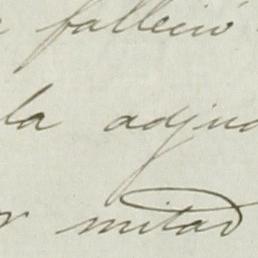 falleció
la adju
mitad